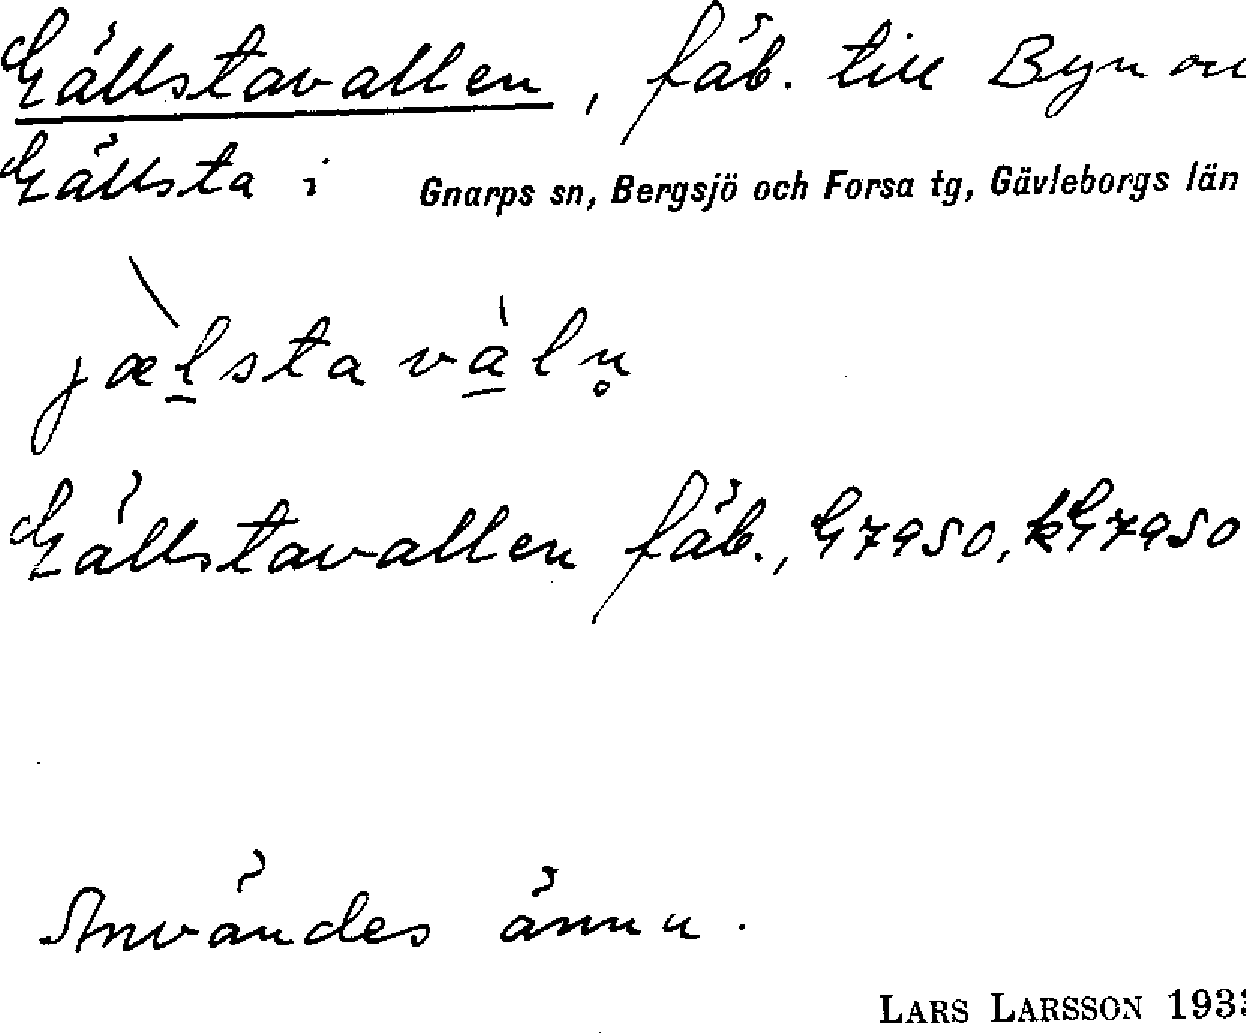 Gällstavallen, fäb. till Byn och
Gällsta i Gnarps sn, Bergsjö och Forsa tg, Gävleborgs län
jæl̠stava̠lņ
Gällstavallen fäb., G7950, kG7950
Användes ännu.
LARS LARSSON 1933